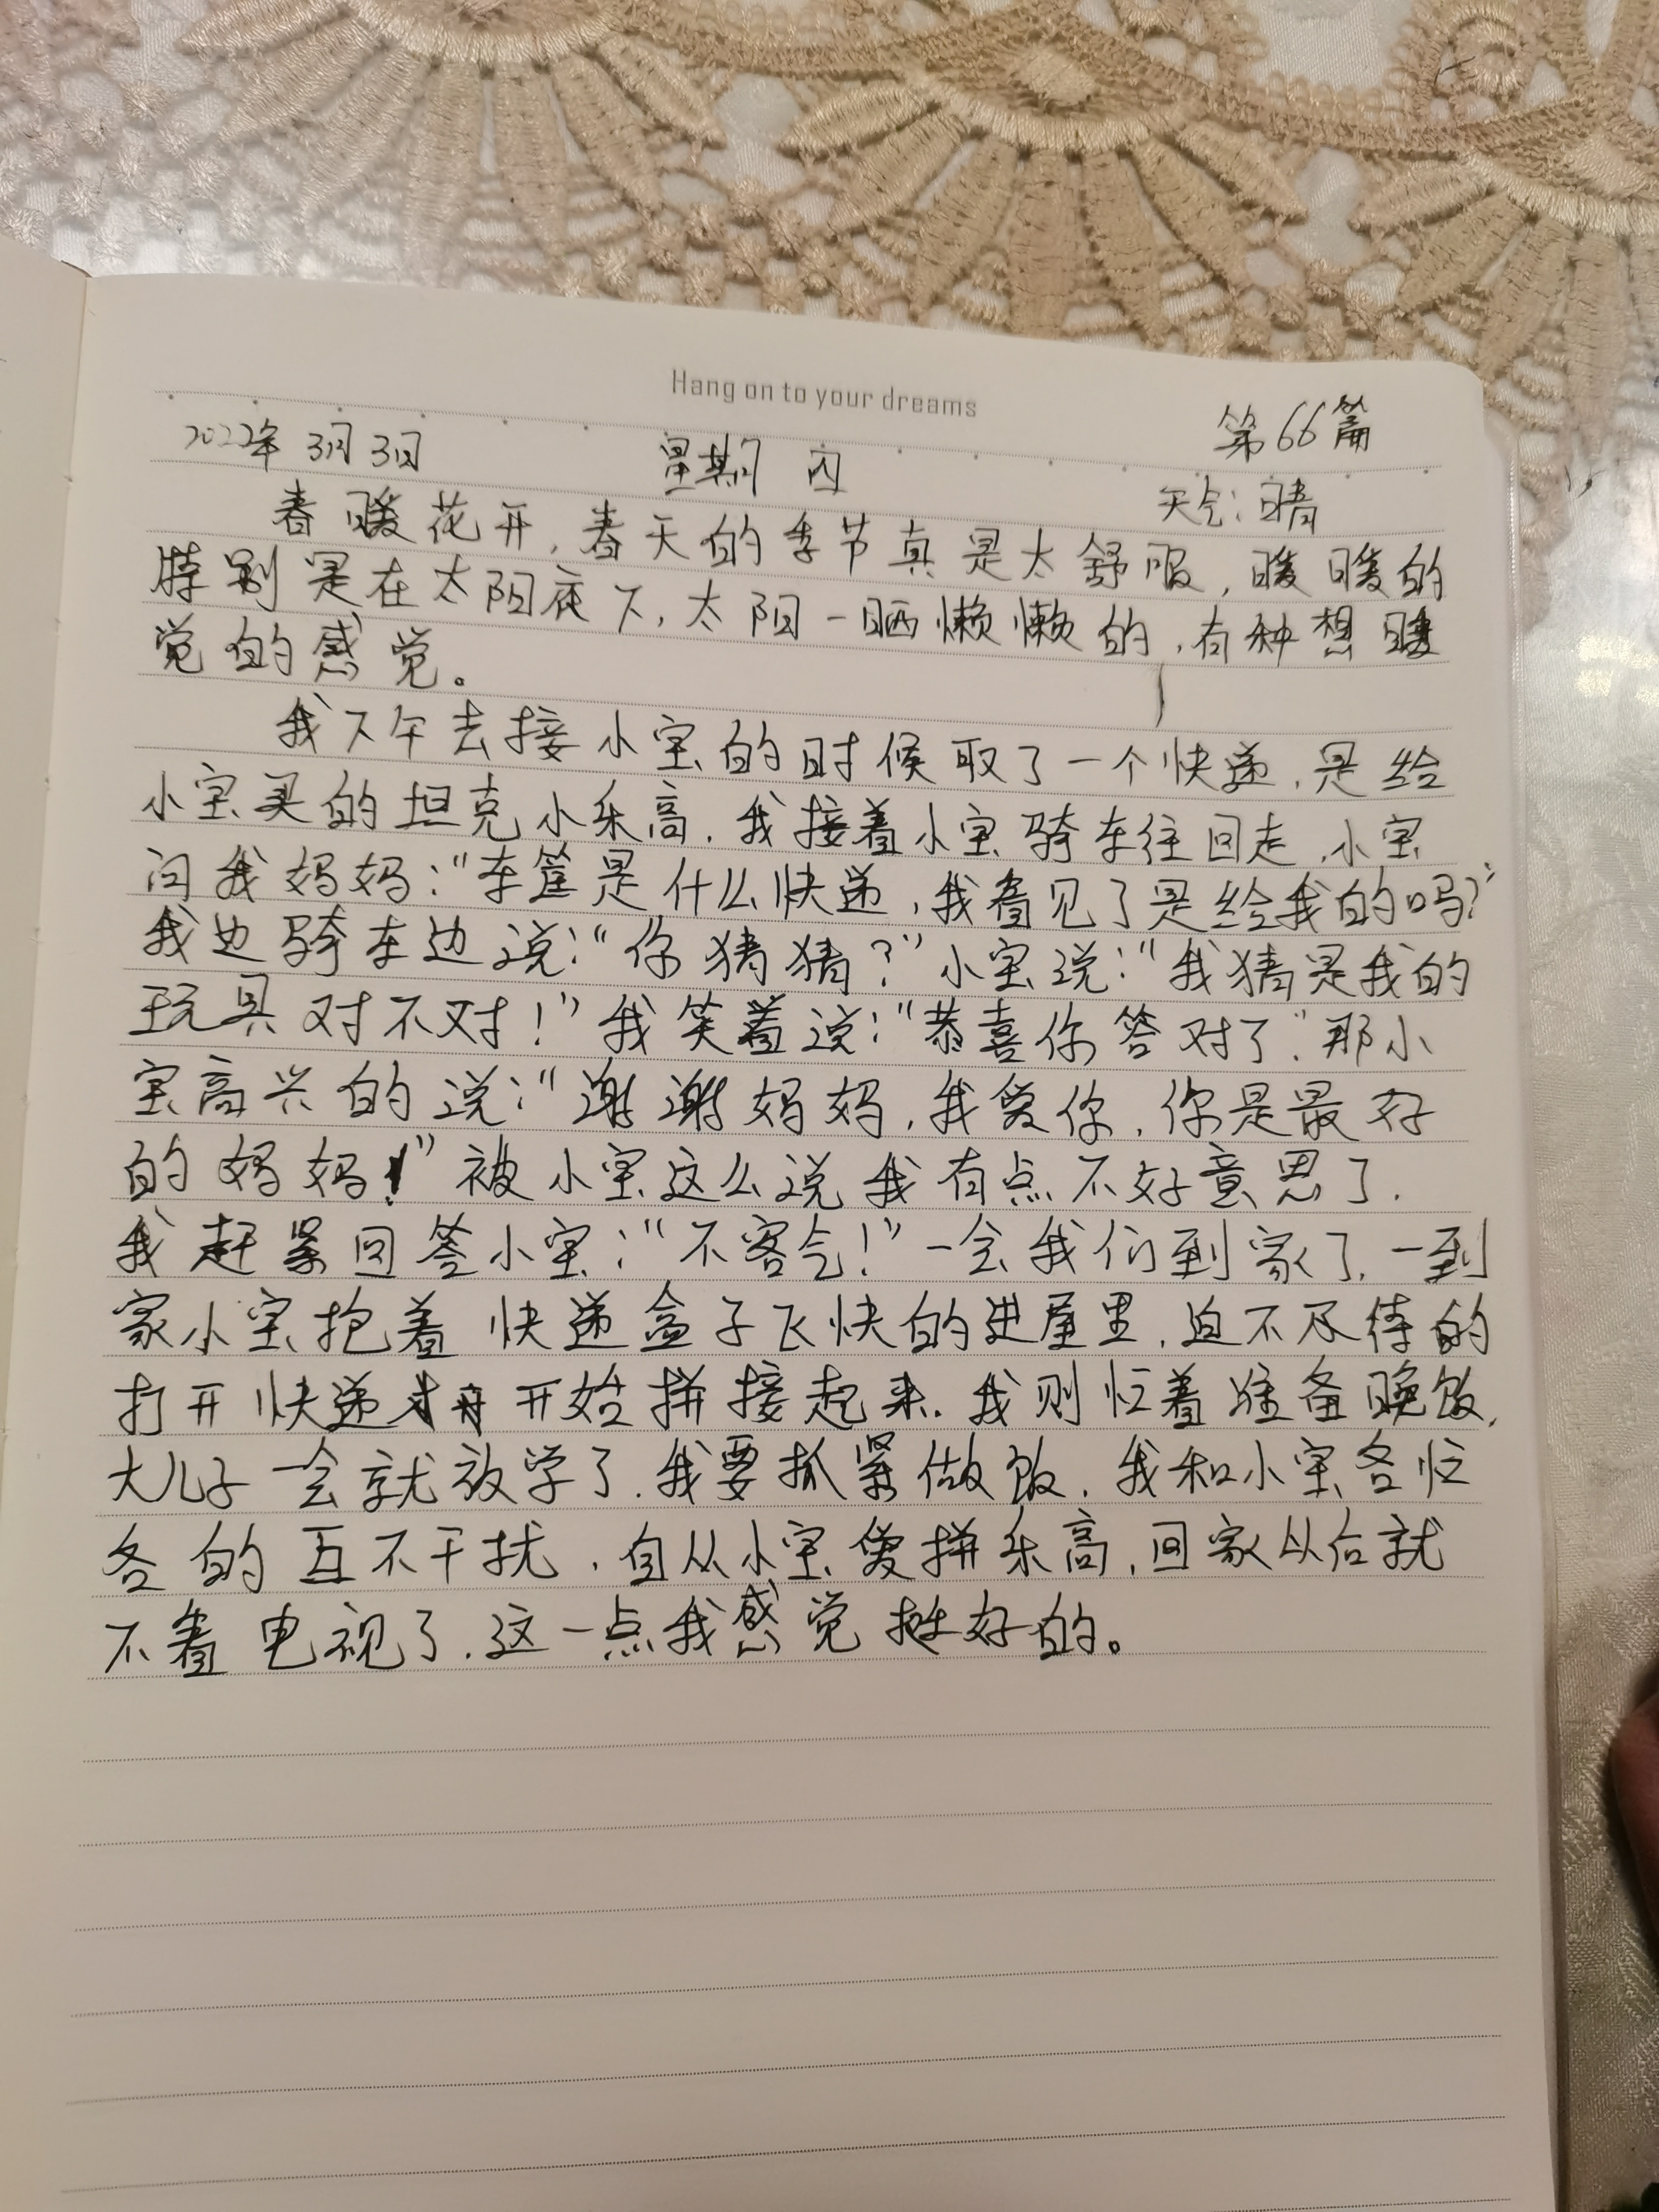 Hang on to your dreams
第66篇
2022年3月3日 星期四 天气:晴
春暖花开,春天的季节真是太舒服,暖暖的
特别是在太阳底下,太阳一晒懒懒的,有种想睡
觉的感觉。
我下午去接小宝的时候取了一个快递,是给
小宝买的坦克小乐高.我接着小宝骑车往回走,小宝
问我妈妈:“车筐是什么快递,我看见了是给我的吗?”
我边骑车边说:“你猜猜?”小宝说:“我猜是我的
玩具对不对!”我笑着说:“恭喜你答对了”.那小
宝高兴的说:“谢谢妈妈,我爱你,你是最好
的妈妈!”被小宝这么说我有点不好意思了.
我赶紧回答小宝:“不客气!”一会我们到家了,一到
家小宝抱着快递盒子飞快的进屋里,迫不及待的
打开快递开始拼接起来.我则忙着准备晚饭,
大儿子一会就放学了.我要抓紧做饭.我和小宝各忙
各的互不干扰,自从小宝爱拼乐高,回家以后就
不看电视了.这一点我感觉挺好的。